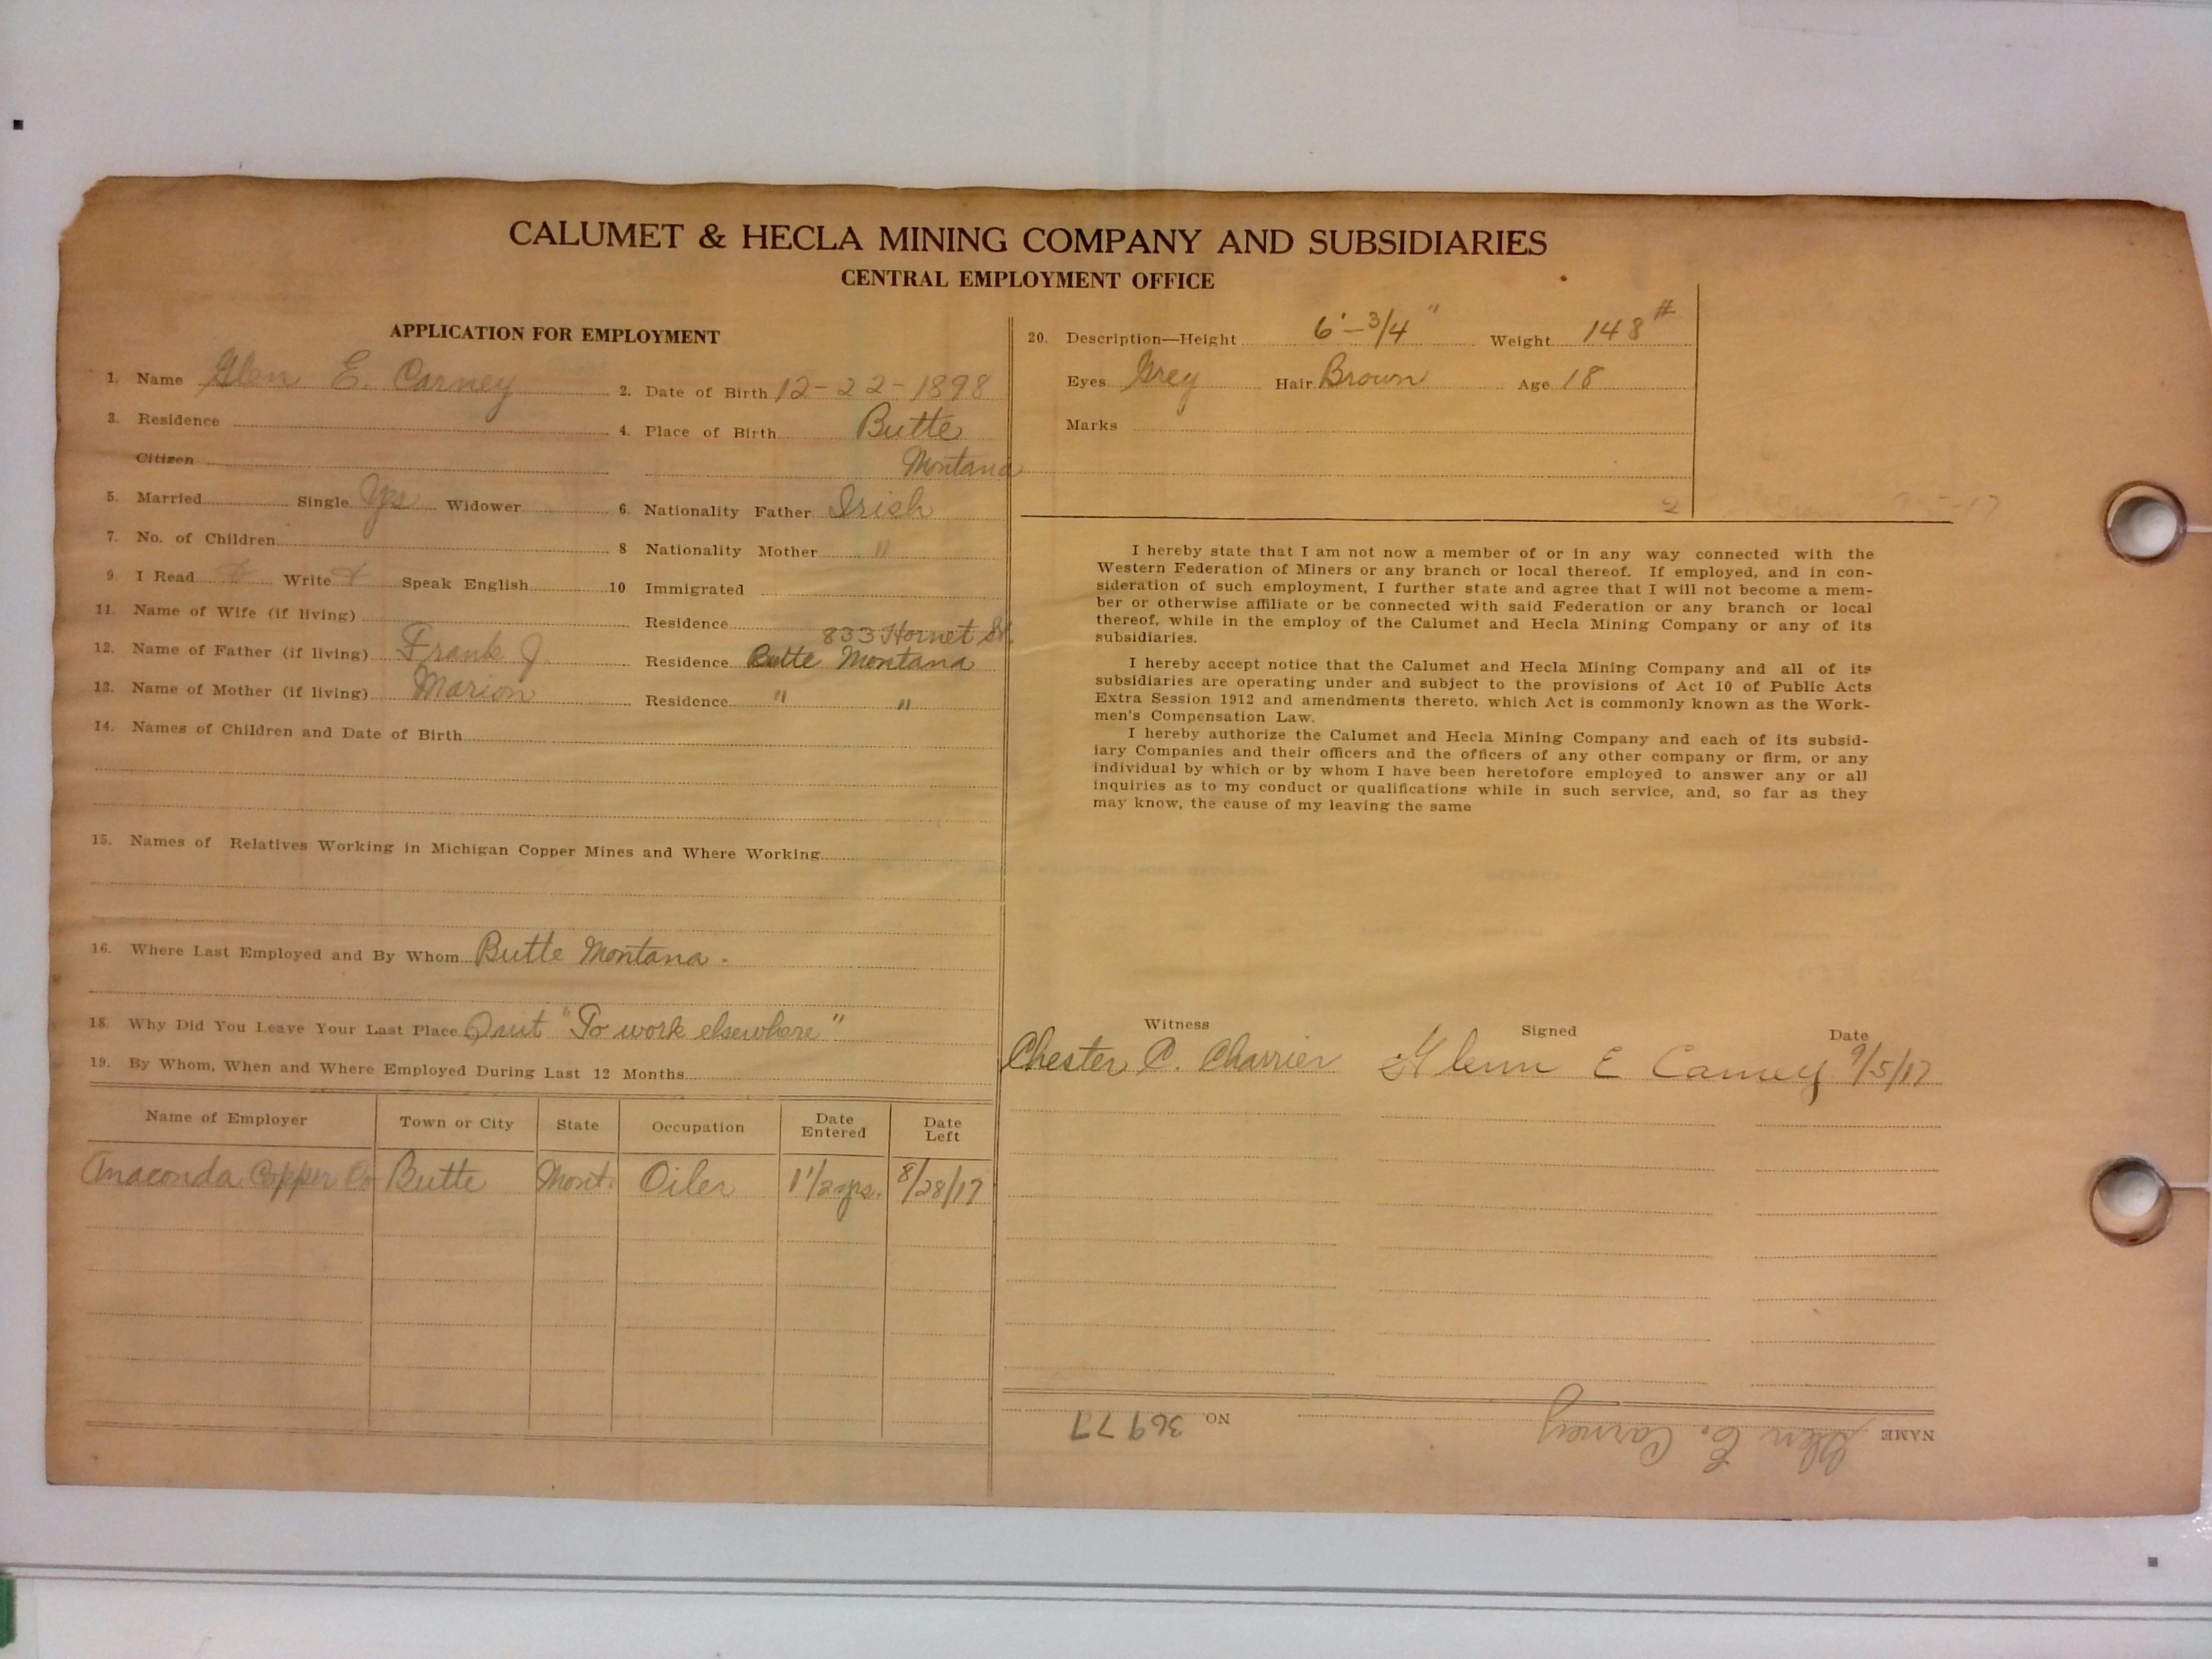 CALUMET & HECLA MINING COMPANY AND SUBSIDIARIES
CENTRAL EMPLOYMENT OFFICE
APPLICATION FOR EMPLOYMENT
1. Name Glen E. Carney 2. Date of Birth 12-22-1898
3. Residence 4. Place of Birth Butte
Citizen Montana
5. Married Single Yes Widower 6. Nationality Father Irish
7. No. of Children 8 Nationality Mother "
9. I Read Write Speak English 10 Immigrated
11. Name of Wife (if living) Residence
833 Hornet St.
12. Name of Father (if living) Frank J. Residence Butte Montana
13. Name of Mother (if living) Marion Residence " "
14. Names of Children and Date of Birth
15. Names of Relatives Working in Michigan Copper Mines and Where Working
16. Where Last Employed and By Whom Butte Montana.
18. Why Did You Leave Your Last Place Quit "To work elsewhere"
19. By Whom, When and Where Employed During Last 12 Months
Name of Employer Town or City State Occupation Date Entered Date Left
Anaconda Copper Co Butte Mont. Oiler 1 1/2 yrs. 8/28/17
20. Description—Height 6'-3/4" Weight 148#
Eyes Grey Hair Brown Age 18
Marks
2
I hereby state that I am not now a member of or in any way connected with the
Western Federation of Miners or any branch or local thereof. If employed, and in con-
sideration of such employment, I further state and agree that I will not become a mem-
ber or otherwise affiliate or be connected with said Federation or any branch or local
thereof, while in the employ of the Calumet and Hecla Mining Company or any of its
subsidiaries.
I hereby accept notice that the Calumet and Hecla Mining Company and all of its
subsidiaries are operating under and subject to the provisions of Act 10 of Public Acts
Extra Session 1912 and amendments thereto, which Act is commonly known as the Work-
men's Compensation Law.
I hereby authorize the Calumet and Hecla Mining Company and each of its subsid-
iary Companies and their officers and the officers of any other company or firm, or any
individual by which or by whom I have been heretofore employed to answer any or all
inquiries as to my conduct or qualifications while in such service, and, so far as they
may know, the cause of my leaving the same
Witness Signed Date
Chester C. Charrier Glenn E Carney 9/5/17
NAME Glen E. Carney NO. 36977